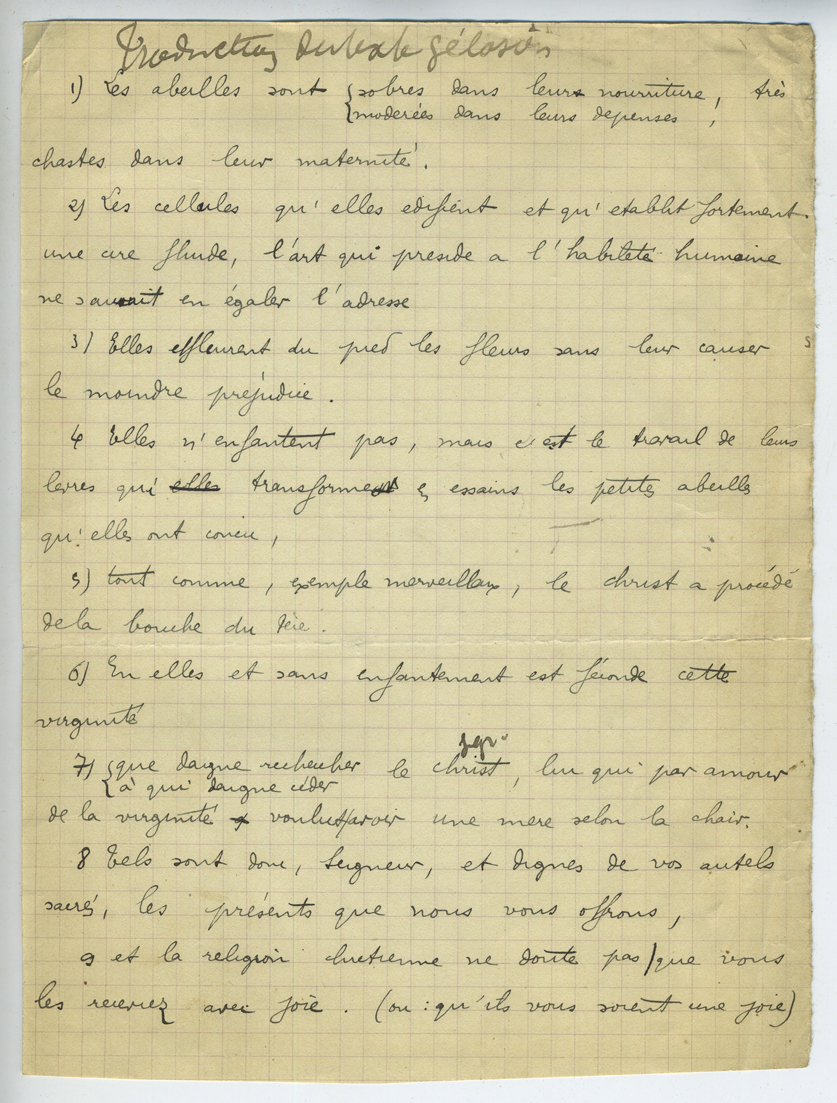 Traduction du texte gélasien
1) Les abeilles sont {sobres dans leurs nourriture, très
{moderées dans leurs depenses,
chastes dans leur maternité.
2) Les cellules qu'elles edifient et qu'etablit fortement
une cire fluide, l'art qui preside a l'habileté humaine
ne saurait en égaler l'adresse
3) Elles effleurent du pied les fleurs sans leur causer
le moindre prejudice.
4 Elles n'enfantent pas, mais c'est le travail de leurs
levres qui elles transforment en essaims les petites abeilles
qu'elles ont concu,
5) tout comme, exemple merveilleux, le christ a procédé
de la bouche du Père.
6) En elles et sans enfantement est féconde cette
virginité
7) {que daigne rechercher le christ, lui qui par amour
{à qui daigne céder
de la virginité voulut avoir une mere selon la chair.
8 Tels sont donc, Seigneur, et dignes de vos autels
sacrés, les présents que nous vous offrons,
9 et la religion chretienne ne doute pas/que vous
les receviez avec joie. (ou : qu'ils vous soient une joie)